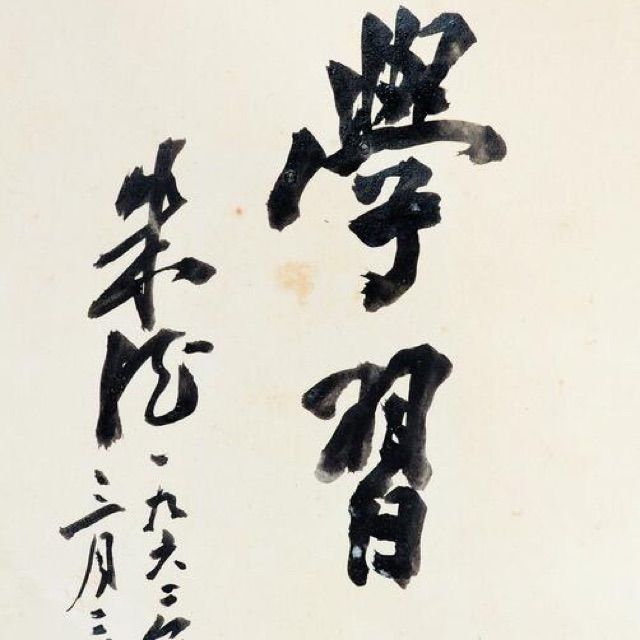 學習
朱德
一九六二年
三月三